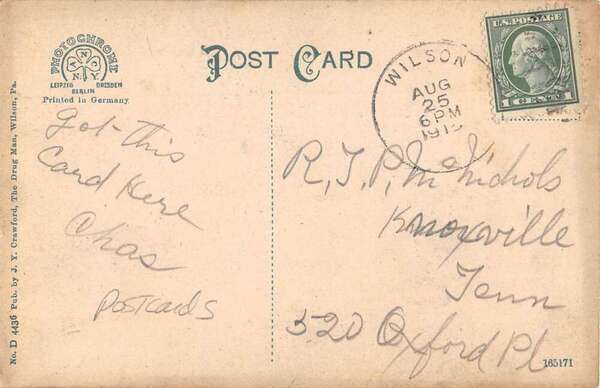 PHOTOCHROME
A N C
N.Y.
LEIPZIG DRESDEN
BERLIN
Printed in Germany
POST CARD
WILSON
AUG
25
6 PM
U.S. POSTAGE
1 CENT 1
Got this
Card Here
Chas
Postcards
R, J, P, McNichols
Knoxville
Tenn
520 Oxford Pl
No. D 4436 Pub. by J. Y. Crawford, The Drug Man, Wilson, Pa.
165171